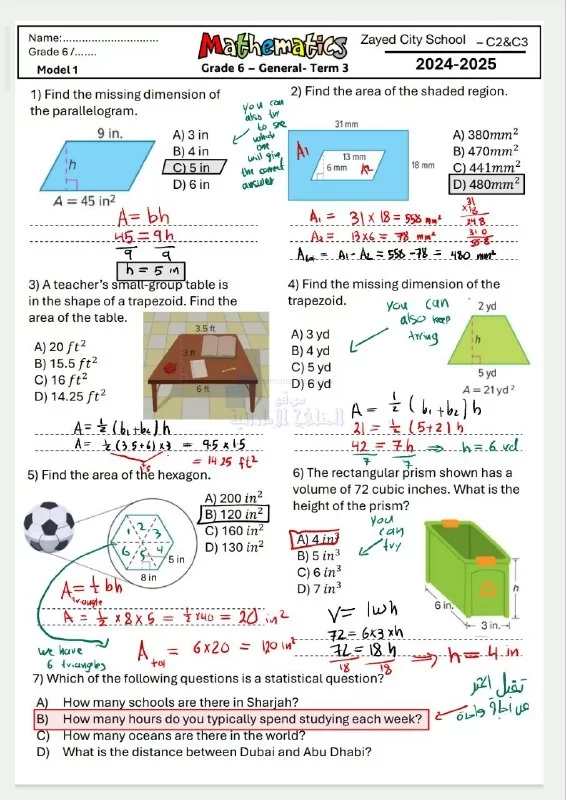 Name:..............................
Grade 6 /.......
Model 1
Mathematics
Grade 6 – General- Term 3
Zayed City School – C2&C3
2024-2025
1) Find the missing dimension of
the parallelogram.
9 in.
h
A = 45 in²
A) 3 in
B) 4 in
C) 5 in
D) 6 in
you can
also try
to see
which
one
will give
the correct
answer
A = bh
45 = 9h
9 9
h = 5 in
2) Find the area of the shaded region.
31 mm
13 mm
6 mm
18 mm
A1
A2
A) 380mm²
B) 470mm²
C) 441mm²
D) 480mm²
A1 = 31 x 18 = 558 mm²
A2 = 13x6 = 78 mm²
A1 - A2 = 558 - 78 = 480 mm²
31
x18
248
310
558
3) A teacher's small-group table is
in the shape of a trapezoid. Find the
area of the table.
3.5 ft
3 ft
6 ft
A) 20 ft²
B) 15.5 ft²
C) 16 ft²
D) 14.25 ft²
A = ½ (b1+b2) h
A = ½ (3.5+6) x 3 = 9.5 x 1.5
1.5
= 14.25 ft²
4) Find the missing dimension of the
trapezoid.
you can
also keep
trying
2 yd
h
5 yd
A = 21 yd²
A) 3 yd
B) 4 yd
C) 5 yd
D) 6 yd
A = ½ (b1+b2) h
21 = ½ (5+2) h
42 = 7h ⇒ h = 6 yd
7 7
موقع
المناهج الإماراتية
5) Find the area of the hexagon.
1 2 3
6 5 4
5 in
8 in
A) 200 in²
B) 120 in²
C) 160 in²
D) 130 in²
A = ½ bh
triangle
A = ½ x 8 x 5 = ½ x 40 = 20 in²
we have
6 triangles
A = 6x20 = 120 in²
6) The rectangular prism shown has a
volume of 72 cubic inches. What is the
height of the prism?
you
can
try
A) 4 in³
B) 5 in³
C) 6 in³
D) 7 in³
h
6 in.
3 in.
V = lwh
72 = 6x3xh
72 = 18 h
18 18
⇒ h = 4 in
7) Which of the following questions is a statistical question?
A) How many schools are there in Sharjah?
B) How many hours do you typically spend studying each week?
C) How many oceans are there in the world?
D) What is the distance between Dubai and Abu Dhabi?
تقبل اكثر
من اجابة واحدة